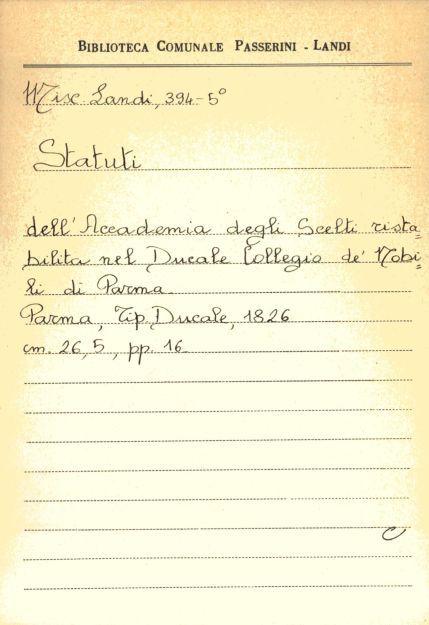 BIBLIOTECA COMUNALE PASSERINI - LANDI
Misc Landi, 394-5°
Statuti
dell'Accademia degli Scelti rista=
bilita nel Ducale Collegio de' Nobi=
li di Parma
Parma, Tip. Ducale, 1826
cm. 26,5, pp. 16
C